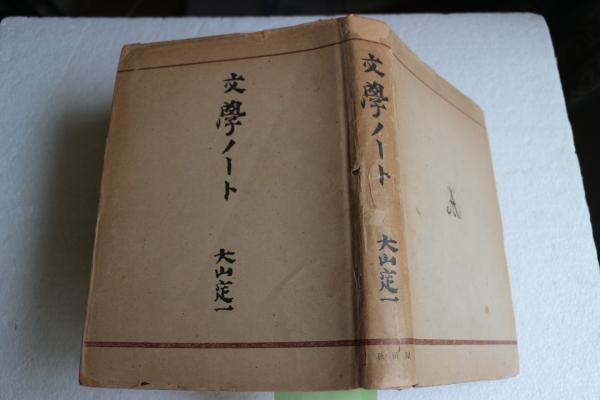 文學ノート
大山定一
文學ノート
大山定一
秋田屋